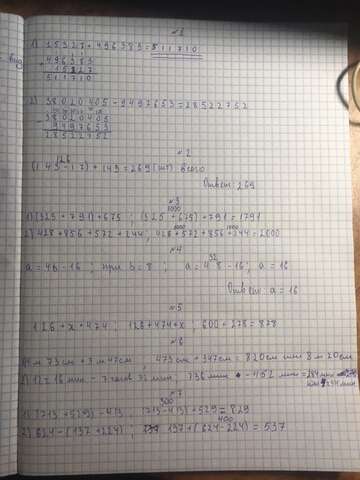 №1
1) 15327 + 496383 = 511710
вид
+ 496383
15327
511710
2) 38020405 - 9497653 = 28522752
- 38020405
9497653
28522752
№2
126
(143 - 17) + 143 = 269 (шт) всего
Ответ: 269
№3
1000
1) (325 + 791) + 675 ; (325 + 675) + 791 = 1791
1000 1000
2) 428 + 856 + 572 + 244 ; 428 + 572 + 856 + 244 = 2000
№4
32
a = 4b - 16 ; при b = 8 ; a = 4·8 - 16 ; a = 16
Ответ: a = 16
№5
126 + x + 474 ; 126 + 474 + x ; 600 + 278 = 878
№6
4м 73см + 3м 47см ; 473см + 347см = 820см или 8м 20см
2) 12ч 16 мин - 7 часов 32 мин ; 736 мин - 452 мин = 284 мин
или 4ч 44 мин
№7
300
1) (713 + 529) - 413 ; (713 - 413) + 529 = 829
400
2) 624 - (137 + 224) ; 137 + (624 - 224) = 537